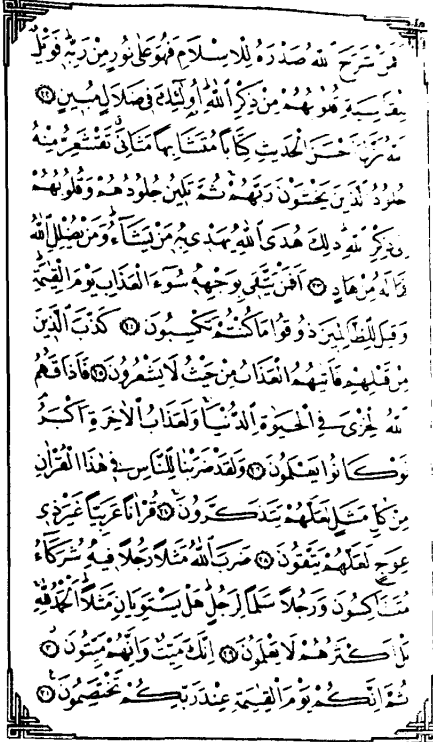 فَمَنْ شَرَحَ اللّٰهُ صَدْرَهُ لِلْاِسْلَامِ فَهُوَ عَلٰى نُورٍ مِنْ رَبِّهٖ فَوَيْلٌ
لِلْقَاسِيَةِ قُلُوبُهُمْ مِنْ ذِكْرِ اللّٰهِ اُولٰئِكَ فٖى ضَلَالٍ مُبٖينٍ ﴿٢٢﴾
اَللّٰهُ نَزَّلَ اَحْسَنَ الْحَدٖيثِ كِتَابًا مُتَشَابِهًا مَثَانِىَ تَقْشَعِرُّ مِنْهُ
جُلُودُ الَّذٖينَ يَخْشَوْنَ رَبَّهُمْ ثُمَّ تَلٖينُ جُلُودُهُمْ وَقُلُوبُهُمْ
اِلٰى ذِكْرِ اللّٰهِ ذٰلِكَ هُدَى اللّٰهِ يَهْدٖى بِهٖ مَنْ يَشَاءُ وَمَنْ يُضْلِلِ اللّٰهُ
فَمَا لَهُ مِنْ هَادٍ ﴿٢٣﴾ اَفَمَنْ يَتَّقٖى بِوَجْهِهٖ سُوءَ الْعَذَابِ يَوْمَ الْقِيٰمَةِ
وَقٖيلَ لِلظَّالِمٖينَ ذُوقُوا مَا كُنْتُمْ تَكْسِبُونَ ﴿٢٤﴾ كَذَّبَ الَّذٖينَ
مِنْ قَبْلِهِمْ فَاَتٰيهُمُ الْعَذَابُ مِنْ حَيْثُ لَا يَشْعُرُونَ ﴿٢٥﴾ فَاَذَاقَهُمُ
اللّٰهُ الْخِزْىَ فِى الْحَيٰوةِ الدُّنْيَا وَلَعَذَابُ الْاٰخِرَةِ اَكْبَرُ
لَوْ كَانُوا يَعْلَمُونَ ﴿٢٦﴾ وَلَقَدْ ضَرَبْنَا لِلنَّاسِ فٖى هٰذَا الْقُرْاٰنِ
مِنْ كُلِّ مَثَلٍ لَعَلَّهُمْ يَتَذَكَّرُونَ ﴿٢٧﴾ قُرْاٰنًا عَرَبِيًّا غَيْرَ ذٖى
عِوَجٍ لَعَلَّهُمْ يَتَّقُونَ ﴿٢٨﴾ ضَرَبَ اللّٰهُ مَثَلًا رَجُلًا فٖيهِ شُرَكَاءُ
مُتَشَاكِسُونَ وَرَجُلًا سَلَمًا لِرَجُلٍ هَلْ يَسْتَوِيَانِ مَثَلًا اَلْحَمْدُ لِلّٰهِ
بَلْ اَكْثَرُهُمْ لَا يَعْلَمُونَ ﴿٢٩﴾ اِنَّكَ مَيِّتٌ وَاِنَّهُمْ مَيِّتُونَ ﴿٣٠﴾
ثُمَّ اِنَّكُمْ يَوْمَ الْقِيٰمَةِ عِنْدَ رَبِّكُمْ تَخْتَصِمُونَ ﴿٣١﴾